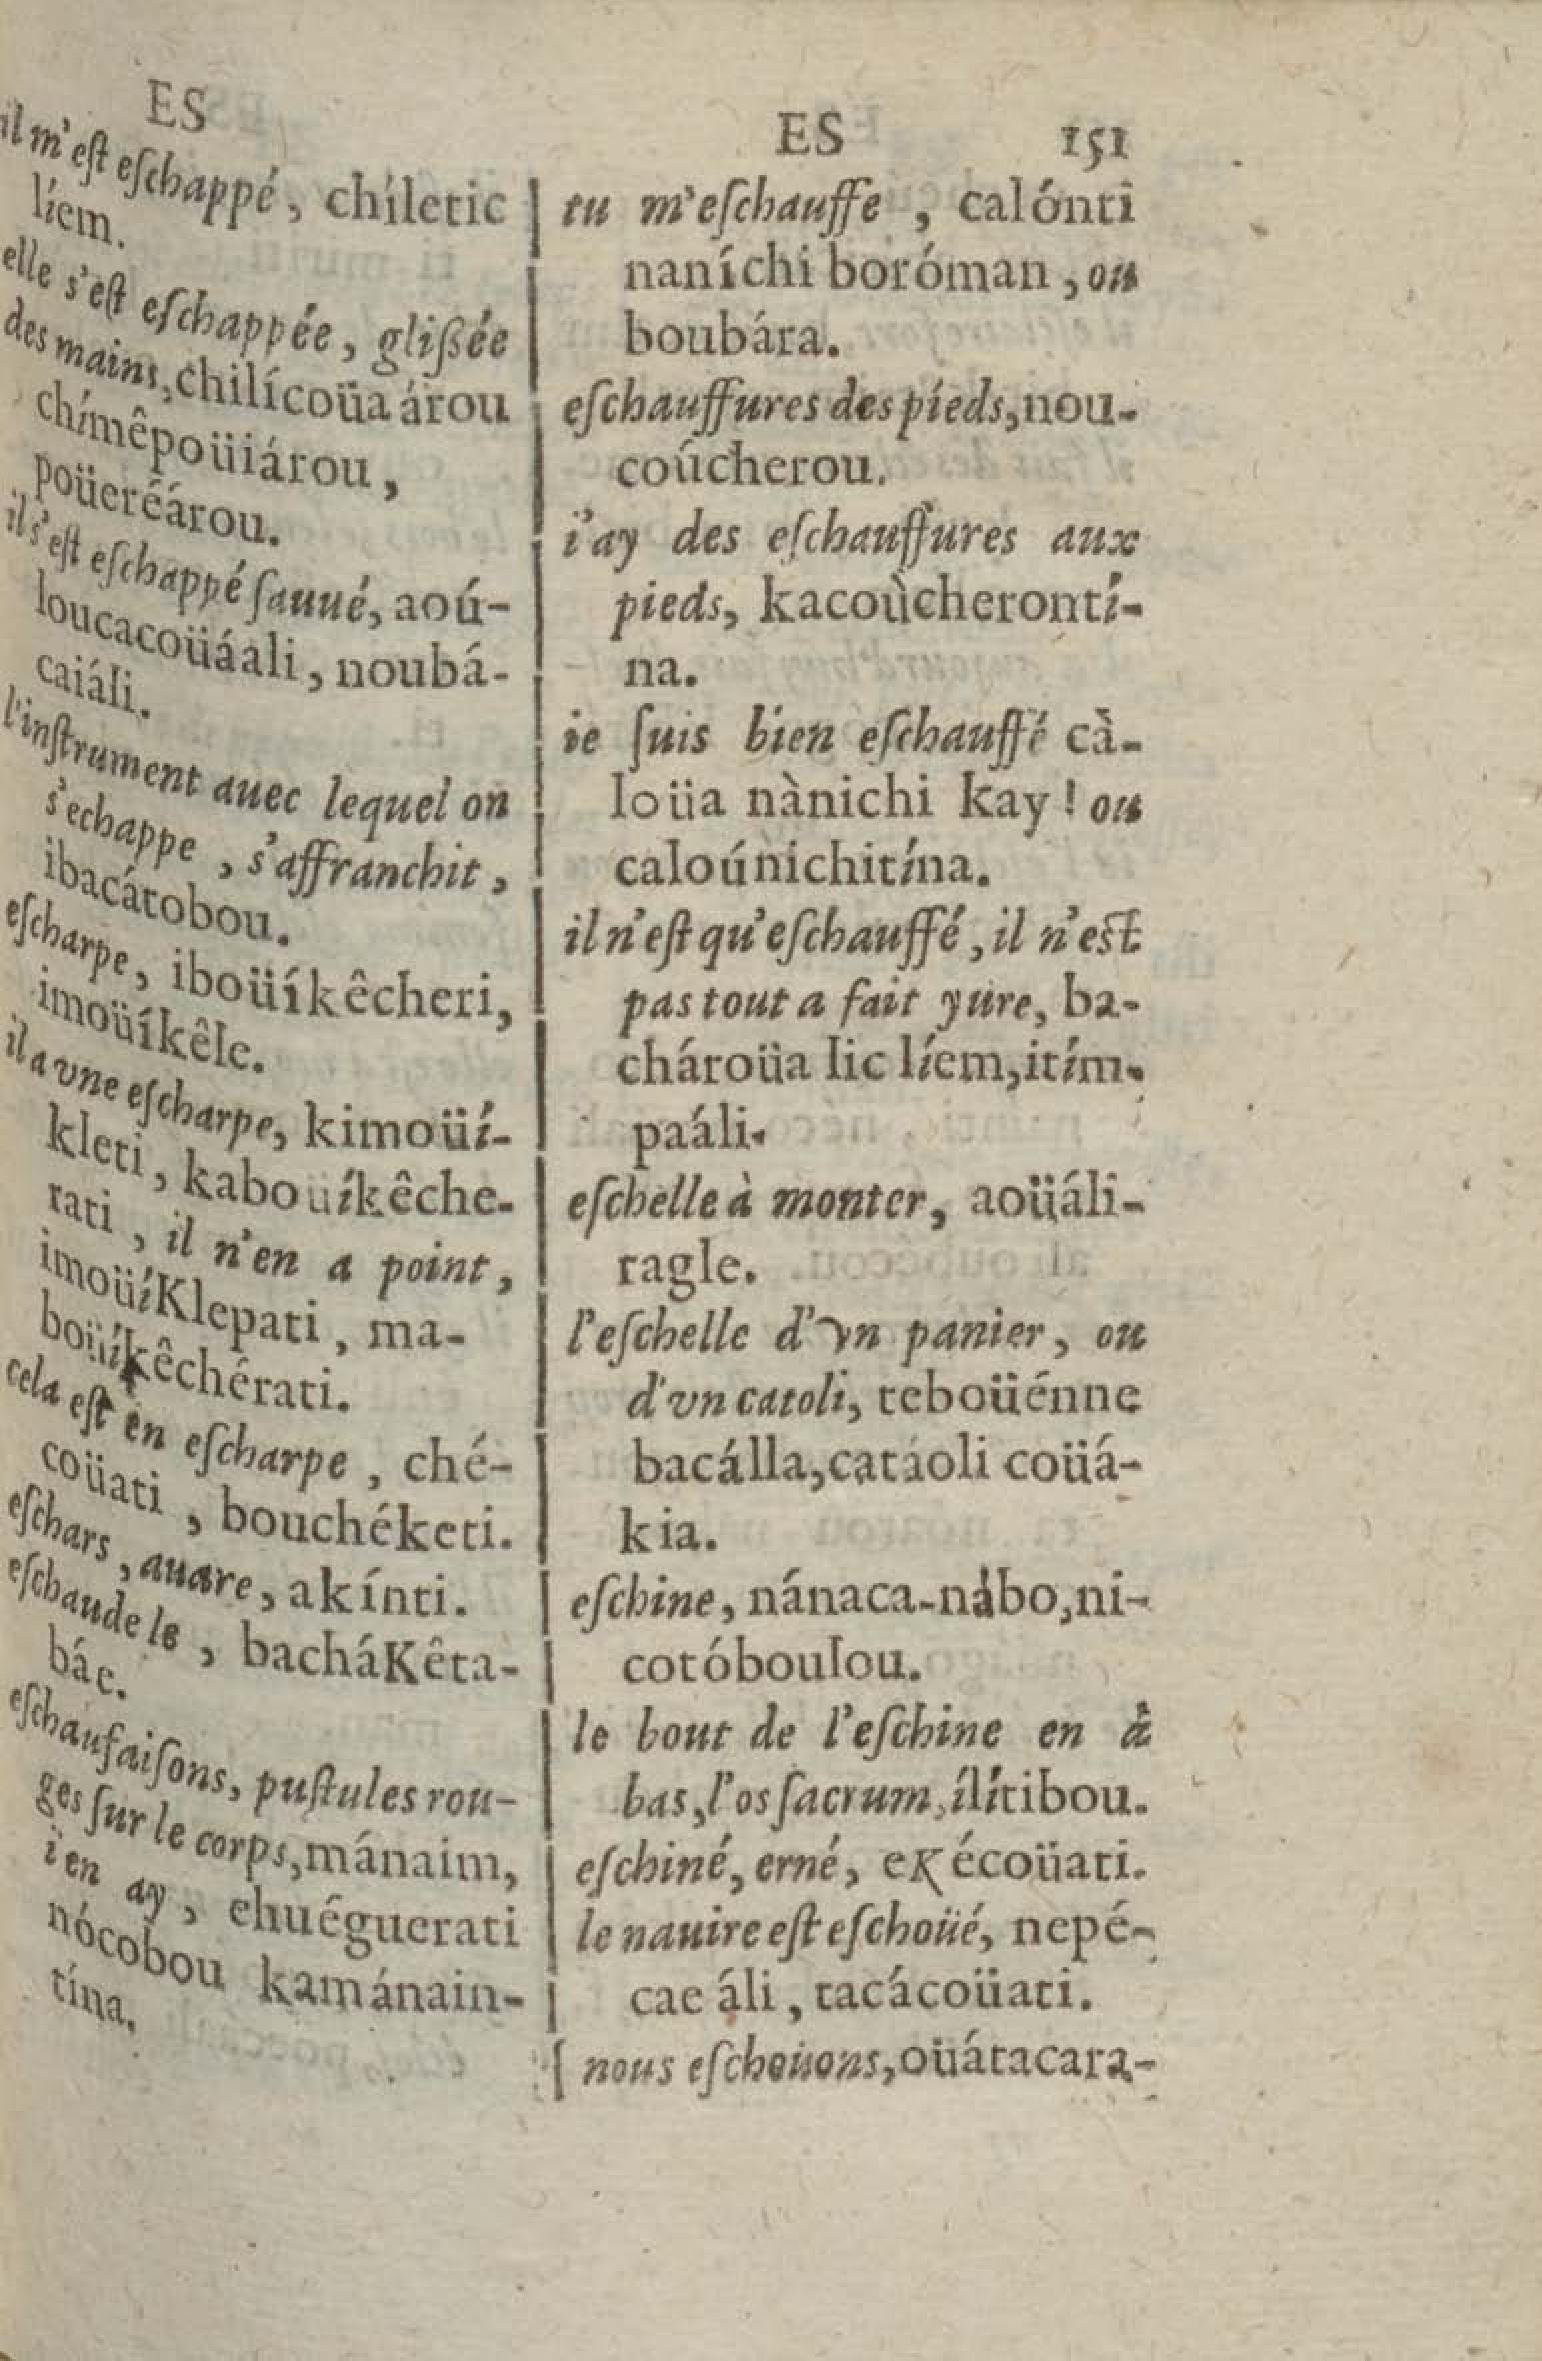 ES
il m'eſt eſchappé, chíletic
líem.
elle s'eſt eſchappée, gliſſée
des mains, chilícoüa árou
chímêpoüiárou,
poüeréárou.
il s'eſt eſchappé ſauué, aoú-
loucacoüáali, noubá-
caiáli.
l'inſtrument auec lequel on
s'echappe, s'affranchit,
ibacátobou.
eſcharpe, iboüíkêcheri,
imoüíkêle.
il a vne eſcharpe, kimoüí-
kleti, kaboüíkêche-
rati, il n'en a point,
imoüíKlepati, ma-
boüíkêchérati.
cela eſt en eſcharpe, ché-
coüati, bouchéketi.
eſchars, auare, akínti.
eſchaude le, bacháKêta-
báe.
eſchaufaiſons, puſtules rou-
ges ſur le corps, mánaim,
i'en ay, ehuéguerati
nócobou kamánain-
tína.
ES 151
tu m'eſchauffe, calónti
naníchi boróman, ou
boubára.
eſchauffures des pieds, nou-
coúcherou.
i'ay des eſchauffures aux
pieds, kacoùcherontí-
na.
ie ſuis bien eſchauffé cà-
loüa nànichi kay! ou
caloúnichitína.
il n'eſt qu'eſchauffé, il n'eſt
pas tout a fait yure, ba-
chároüa lic líem, itím-
paáli.
eſchelle à monter, aoüáli-
ragle.
l'eſchelle d'vn panier, ou
d'vn catoli, teboüénne
bacálla, catáoli coüá-
kia.
eſchine, nánaca-nábo, ni-
cotóboulou.
le bout de l'eſchine en à
bas, l'os ſacrum, ílítibou.
eſchiné, erné, eKécoüati.
le nauire eſt eſchoüé, nepé-
cae áli, tacácoüati.
nous eſchoüons, oüátacara-